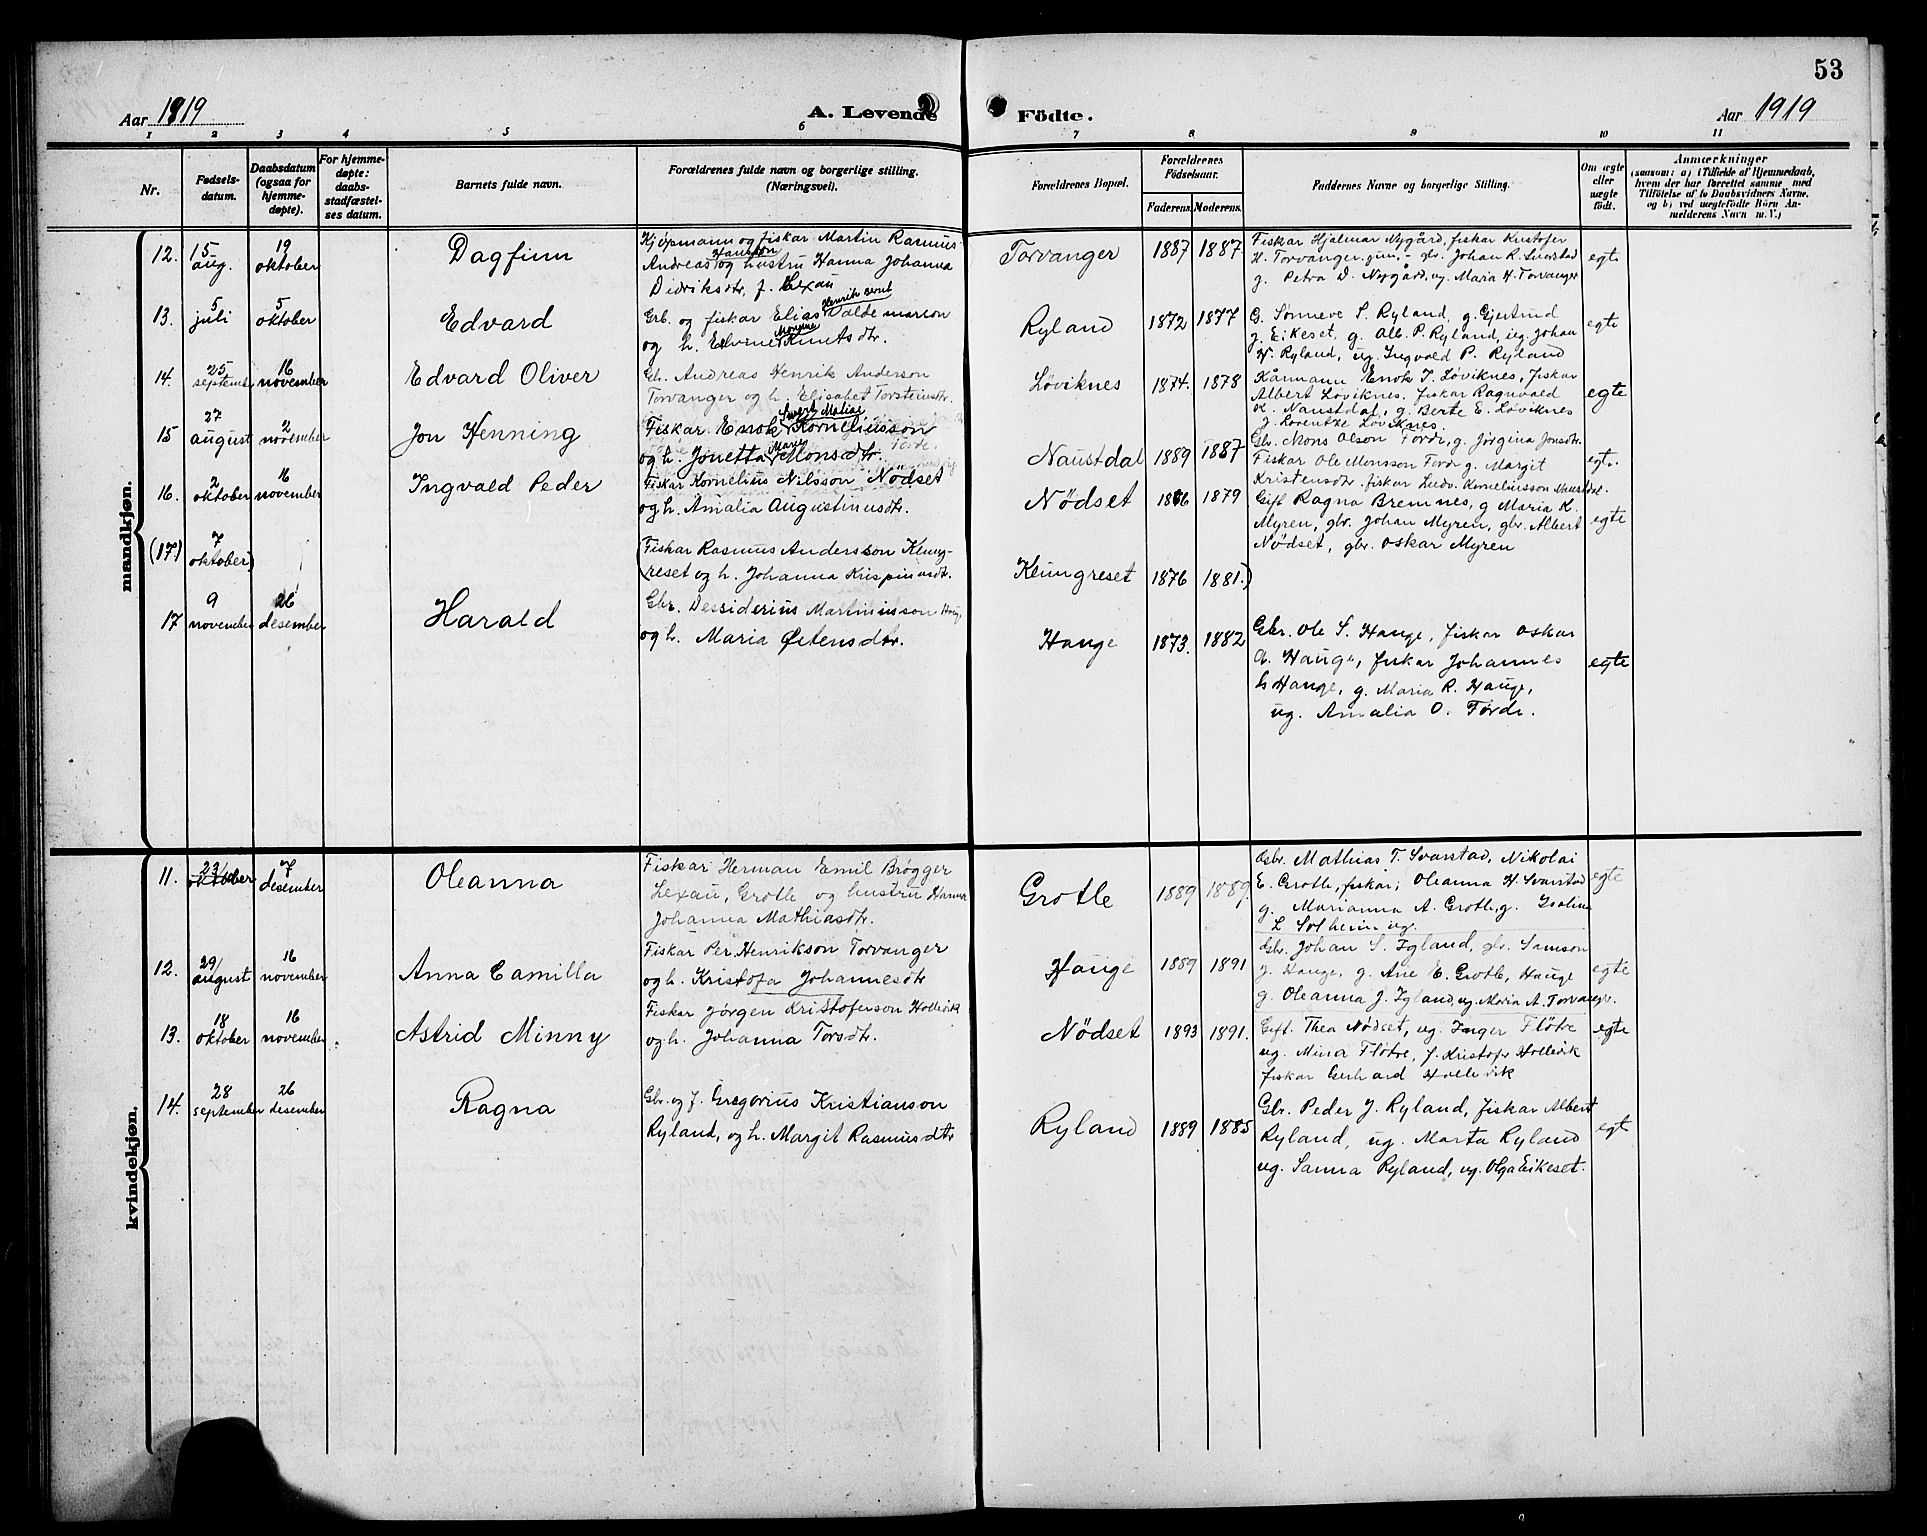 53
Aar 1919
A. Levende Födte.
Aar 1919
1 2 3 4 5 6 7 8 9 10 11
Nr.
Fødselsdatum.
Daabsdatum (ogsaa for hjemmedøpte).
For hjemmedøpte: daabsstadfæstelses datum.
Barnets fulde navn.
Forældrenes fulde navn og borgerlige stilling. (Næringsvei).
Forældrenes Bopæl.
Forældrenes Fødselsaar.
Faderens. Moderens.
Faddernes Navne og borgerlige Stilling.
Om ægte eller uægte født.
Anmærkninger
(saasom: a) i Tilfælde af Hjemmedaab,
hvem der har forrettet samme med
Tilföielse af to Daabsvidners Navne,
og b) ved uægtefödte Börn Anmelderens Navn m.V.)
mandkjøn.
12. 15 aug. 19 oktober Dagfinn
Kjøpmann og fiskar Martin Rasmus
Andreas Hansson og hustru Hanna Johanna
Didriksdtr. f. Lexau
Torvanger 1887 1887
Fiskar Hjalmar Nygård, fiskar Kristofer
H. Torvanger, gbr. Johan R. Sverstad
g. Petra D. Nygård, ug. Maria H. Torvanger
egte
13. 5 juli 5 oktober Edvard
Grb. og fiskar Elias Henrik Bernt Valdemarson
og h. Elvine Monsine Knutsdtr.
Ryland 1872 1877
G. Sønneve S. Ryland, g. Gjertrud
J. Eikeset, g. Alb. P. Ryland, ug. Johan
W. Ryland, ug. Ingvald P. Ryland
egte
14. 25 septemb. 16 november Edvard Oliver
Gbr. Andreas Henrik Anderson
Torvanger og h. Elisabet Torsteinsdtr.
Løviknes 1874. 1878
Kårmann Enok J. Løviknes, fiskar
Albert Løviknes, fiskar Ragnvald
K. Naustdal, g. Berte E. Løviknes
g. Lorentze Løviknes.
egte
15 27 august 2 november Jon Henning
Fiskar Enok Sivert Matias Korneliusson
og h. Jonetta Maria Monsdtr.
Naustdal 1889 1887
Gbr. Mons Olson Förde, g. Jørgina Jonsdtr.
Fiskar Ole Monsson Förde g. Margit
Kristensdtr. fiskar Ludv. Korneliusson Naustdal.
egte
16. 2 oktober 16 november Ingvald Peder
Fiskar Kornelius Nilsson Nödset
og h. Amalia Augustinusdtr.
Nödset 1876 1879
Gift Ragna Bremnes, g Maria K.
Myren, gbr. Johan Myren, gbr. Albert
Nödset, gbr. Oskar Myren
egte
(17) 7 oktober)
(Fiskar Rasmus Andersson Klung-
reset og h. Johanna Krispinusdtr.
Klungreset 1876 1881.)
17 9 november 26 desember Harald
Gbr. Dessiderius Martinusson Haug,
og h. Maria Østensdtr.
Hauge 1873. 1882
Gbr. Ole S. Hauge, fiskar Oskar
A. Hauge, fiskar Johannes
L Hauge, g. Maria R. Hauge,
ug. Amalia O. Förde.
egte
kvindekjøn.
11. 23/ oktober 7 desember Oleanna
Fiskar Herman Emil Brøgger
Lexau, Grotle og hustru Hanna
Johanna Mathiasdtr.
Grotle 1889 1889.
Gbr. Mathias T. Svarstad, Nikolai
E. Grotle, fiskar, Oleanna H. Svarstad
g. Marianna A. Grotle, g.
L Solheim ug.
egte
12. 29/ august 16 november Anna Camilla
Fiskar Per Henrikson Torvanger
og h. Kristofa Johannesdtr
Hauge 1889 1891
Gbr. Johan S. Igland, gbr. Samson
J. Hauge, g. Ane E. Grotle, Hauge
g. Oleanna J. Igland, ug. Maria A. Torvanger.
egte
13. 18 oktober 16 november Astrid Minny
Fiskar Jørgen Kristoferson Hollevik
og h. Johanna Torsdtr.
Nödset 1893 1891.
Gift. Thea Nödset, ug. Inger Flötre
ug. Mina Flötre, f. Kristofer Hollevik
fiskar Gerhard Hollevik
egte
14. 28 september 26 desember Ragna
Gbr. og f. Gregorius Kristianson
Ryland, og h. Margit Rasmusdtr
Ryland 1889 1885
Gbr. Peder J. Ryland, fiskar Albert
Ryland, ug. Marta Ryland
ug. Sanna Ryland, ug. Olga Eikeset.
egte